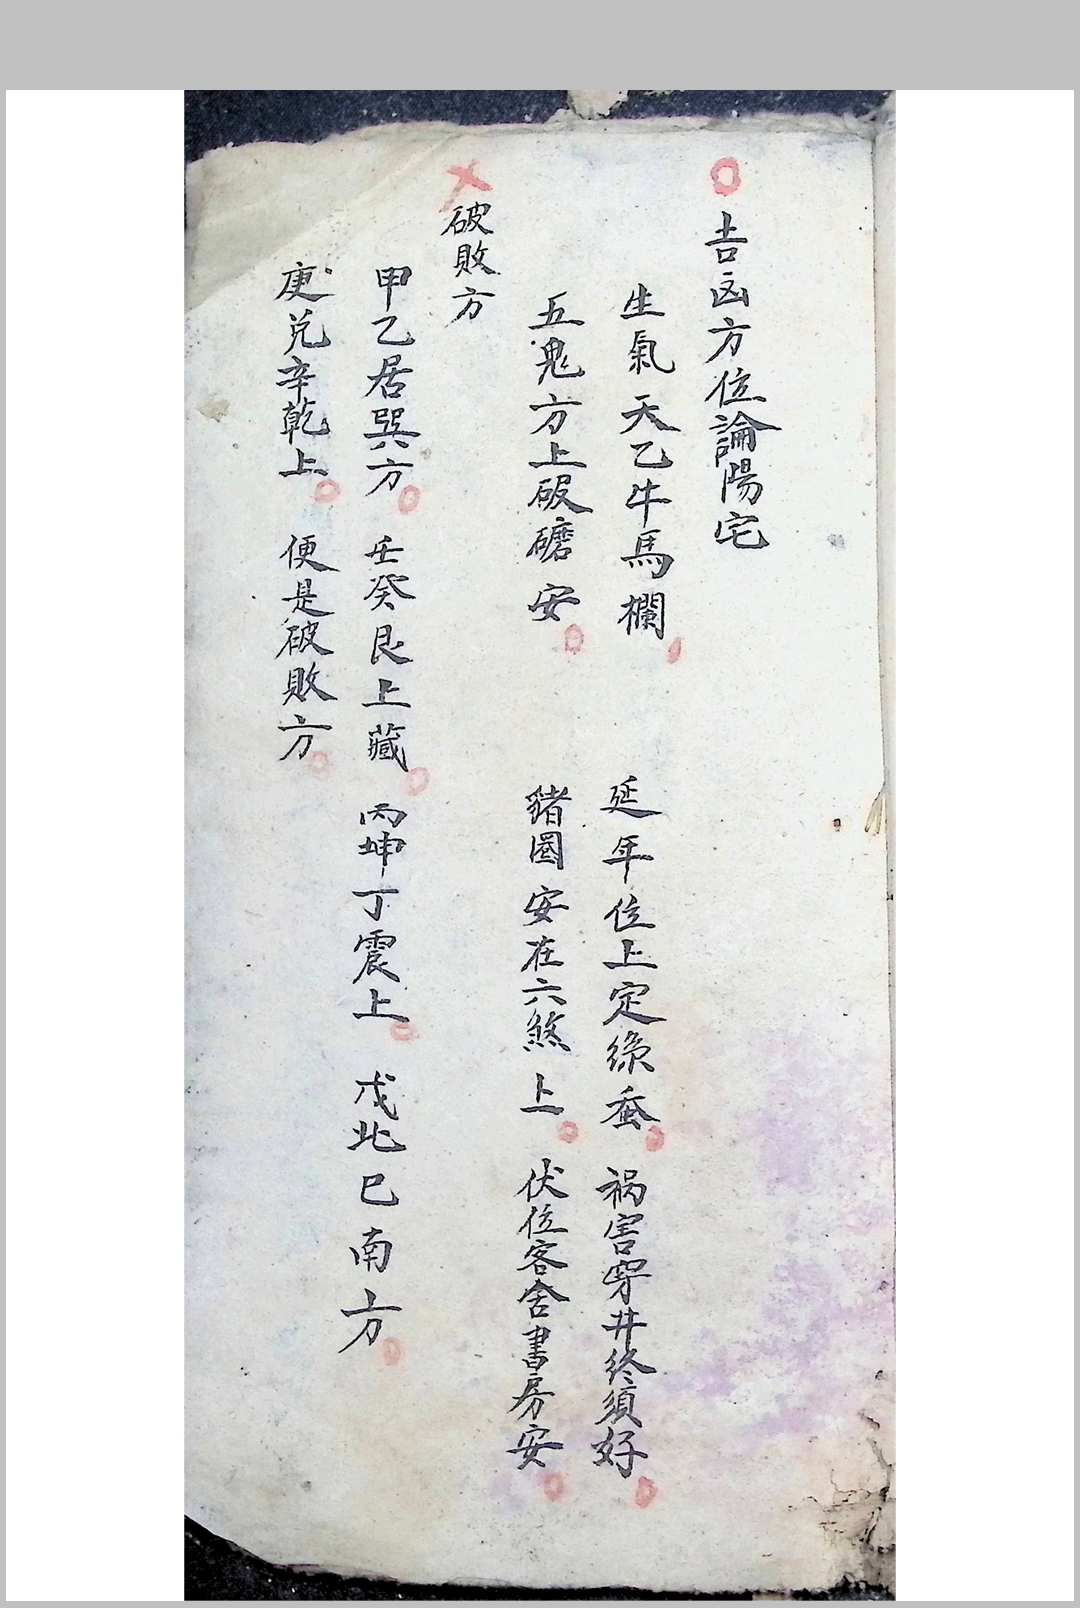 吉凶方位論陽宅
生氣天乙牛馬欄 延年位上定綠蚕 祸害穿井終須好
五鬼方上碬磨安 豬圈安在六煞上 伏位客舍書房安
破敗方
甲乙居巽方 壬癸艮上藏 丙坤丁震上 戊北巳南方
庚兌辛乾上 便是破敗方